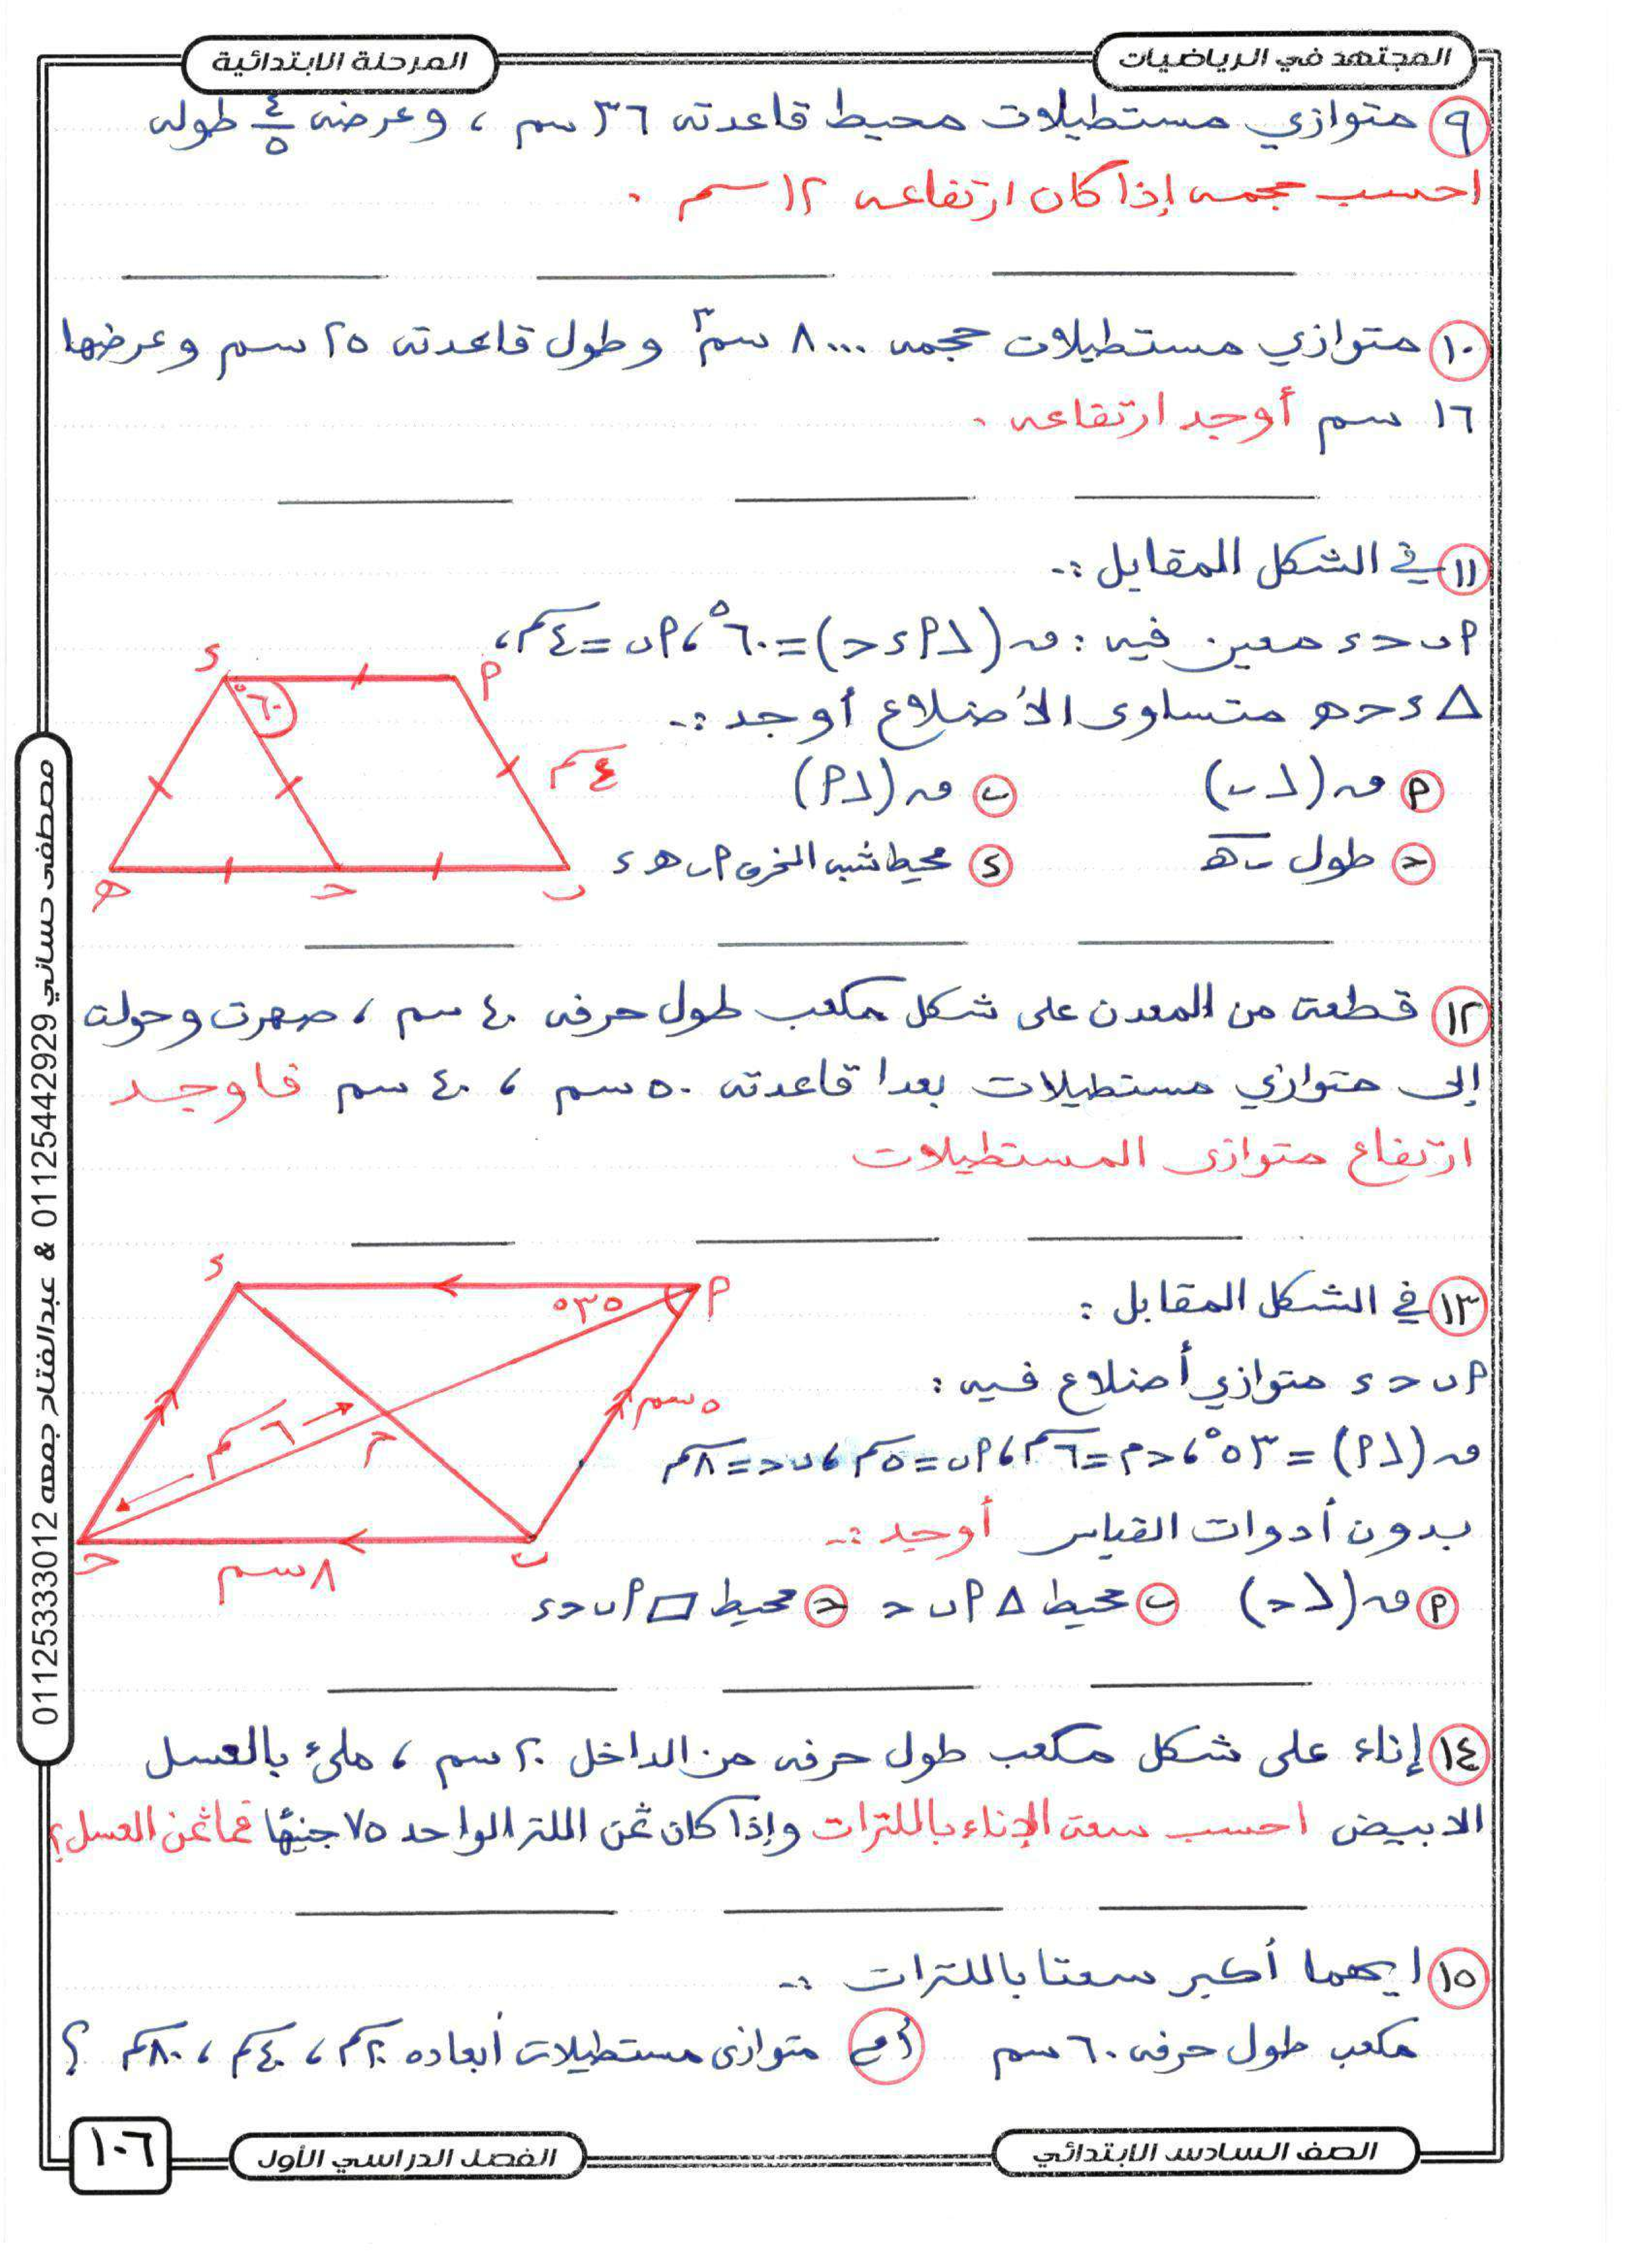 المجتهد في الرياضيات
المرحلة الابتدائية
٩ متوازي مستطيلات محيط قاعدته ٣٦ سم ، وعرضه ٤/٥ طوله
احسب حجمه إذا كان ارتفاعه ١٢ سم .
١٠ متوازي مستطيلات حجمه ٨٠٠٠ سم٣ وطول قاعدته ٢٥ سم وعرضها
١٦ سم أوجد ارتفاعه .
١١ في الشكل المقابل :-
P ب ح د معين فيه : ق (∠ P د ح) = ٦٠° ، P ب = ٤ سم ،
△ د ح ه متساوى الأضلاع أوجد :-
P ق (∠ ب)
ب ق (∠ P)
ح طول ب ه
د محيط شبه المنحرف P ب ه د
د
P
٦٠°
٤ سم
ه
ح
ب
١٢ قطعة من المعدن على شكل مكعب طول حرفه ٤٠ سم ، صهرت وحولت
إلى متوازي مستطيلات بعدا قاعدته ٥٠ سم ، ٤٠ سم فاوجد
ارتفاع متوازى المستطيلات
١٣ في الشكل المقابل :
P ب ح د متوازي أضلاع فيه :
ق (∠ P) = ٥٣° ، ح م = ٦ سم ، P ب = ٥ سم ، ب ح = ٨ سم
بدون أدوات القياس أوجد :-
P ق (∠ ح) ب محيط △ P ب ح ح محيط ▱ P ب ح د
د
P
٥٣°
٥ سم
٦ سم
م
ح
ب
٨ سم
١٤ إناء على شكل مكعب طول حرفه من الداخل ٢٠ سم ، ملئ بالعسل
الابيض احسب سعة الإناء باللترات وإذا كان ثمن اللتر الواحد ٧٥ جنيهًا فما ثمن العسل ؟
١٥ ايهما أكبر سعتا باللترات :-
مكعب طول حرفه ٦٠ سم أم متوازى مستطيلات أبعاده ٢٠ سم ، ٤٠ سم ، ٨٠ سم ؟
الصف السادس الابتدائي
الفصل الدراسي الأول
١٠٦
مصطفى حساني 01125442929 & عبدالفتاح جمعه 01125333012